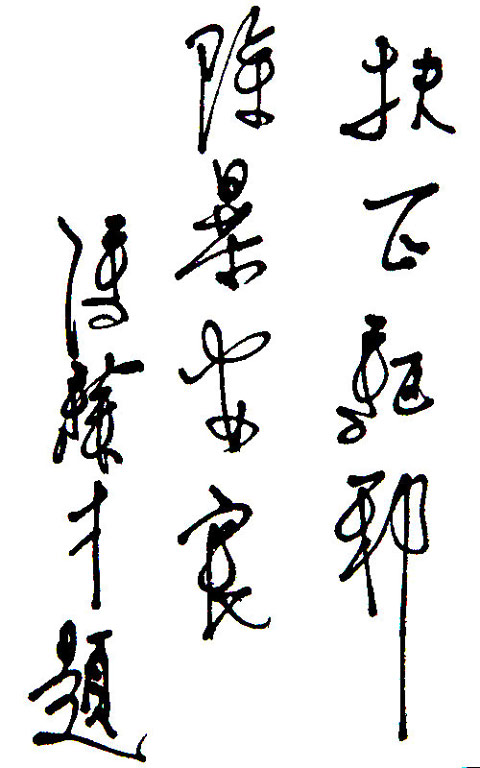 扶正驱邪
除暴安良
傅膺才题